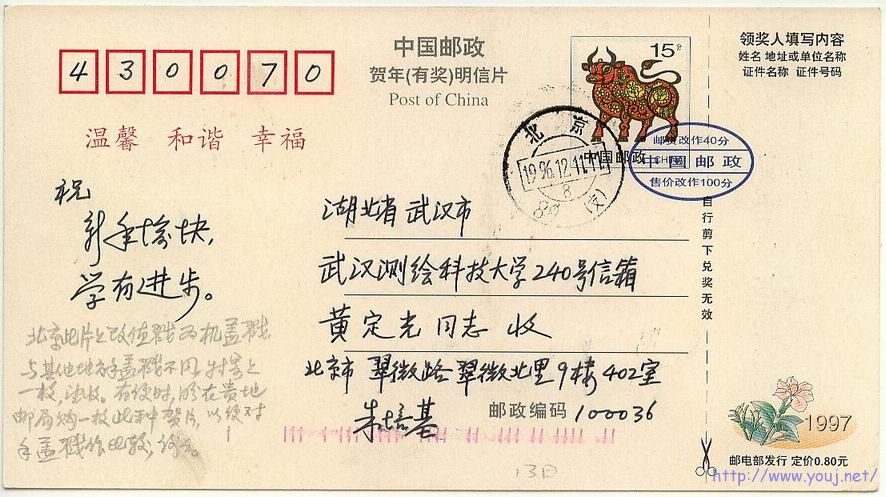 中国邮政
贺年(有奖)明信片
Post of China
430070
温馨 和谐 幸福
15分
中国邮政
CHINA
邮资改作40分
中国邮政
售价改作100分
北京
1996.12.11.11
8
(支)
领奖人填写内容
姓名 地址或单位名称
证件名称 证件号码
自行剪下兑奖无效
祝
新年愉快,
学有进步。
湖北省武汉市
武汉测绘科技大学240号信箱
黄定光同志 收
北京市翠微路翠微北里9楼402室
朱培基
邮政编码 100036
北京此片之改值戳为机盖戳
与其他地方手盖戳不同,特寄上
一枚,请收。有便时,盼在贵地
邮局购一枚此种贺片,以便对
手盖戳作比较,
13日
1997
邮电部发行 定价0.80元
http://www.youj.net/